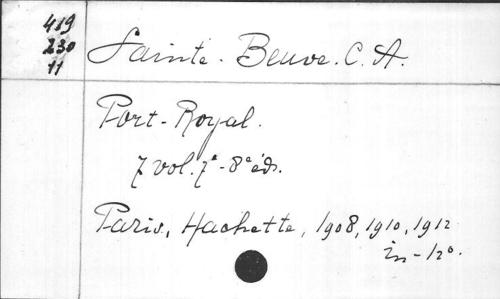 419
230
11
Sainte-Beuve. C. A.
Port-Royal.
7 vol. 7e-8e éds.
Paris, Hachette, 1908, 1910, 1912
in-12o.